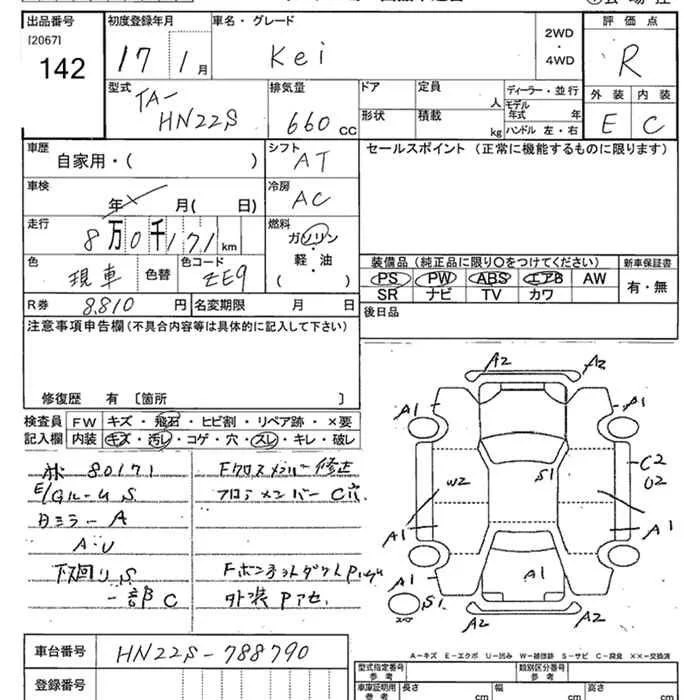 出品番号 初度登録年月 車名・グレード 2WD・4WD 評価点
[2067]
142 17 1月 Kei R
型式 排気量 ドア 定員 人 ディーラー・並行 外装 内装
TA-
HN22S 660 CC 形状 積載 kg モデル年式 年 E C
ハンドル 左・右
車歴 シフト セールスポイント (正常に機能するものに限ります)
自家用・( ) AT
車検 冷房
年 月( 日) AC
走行 燃料
8万0千171km ガソリン・軽・油・( )
色 色コード 装備品(純正品に限り○をつけてください) 新車保証書
現車 色替 ZE9 PS PW ABS エアB AW 有・無
SR ナビ TV カワ
R券 8,810円 名変期限 月 日 後日品
注意事項申告欄(不具合内容等は具体的に記入して下さい)
修復歴 有 [箇所 ]
検査員 FW キズ・飛石・ヒビ割・リペア跡・×要
記入欄 内装 キズ・汚レ・コゲ・穴・スレ・キレ・破レ
80171 Fクロスメンバー修正
E/Gルーム S フロアメンバー C穴
Bミラー A
A・U
下回り S
一部C 外装Pアセ
A2 A2
A1 A1
W2 S1 C2
U2
A1 A1
A1 A1
S1
スペア
A2 A2
A-キズ E-エクボ U-凹み W-補修跡 S-サビ C-腐食 ××-交換済
車台番号 HN22S-788790
型式指定番号 参考 類別区分番号 参考
登録番号 車庫証明用 参考 長さ cm 幅 cm 高さ cm